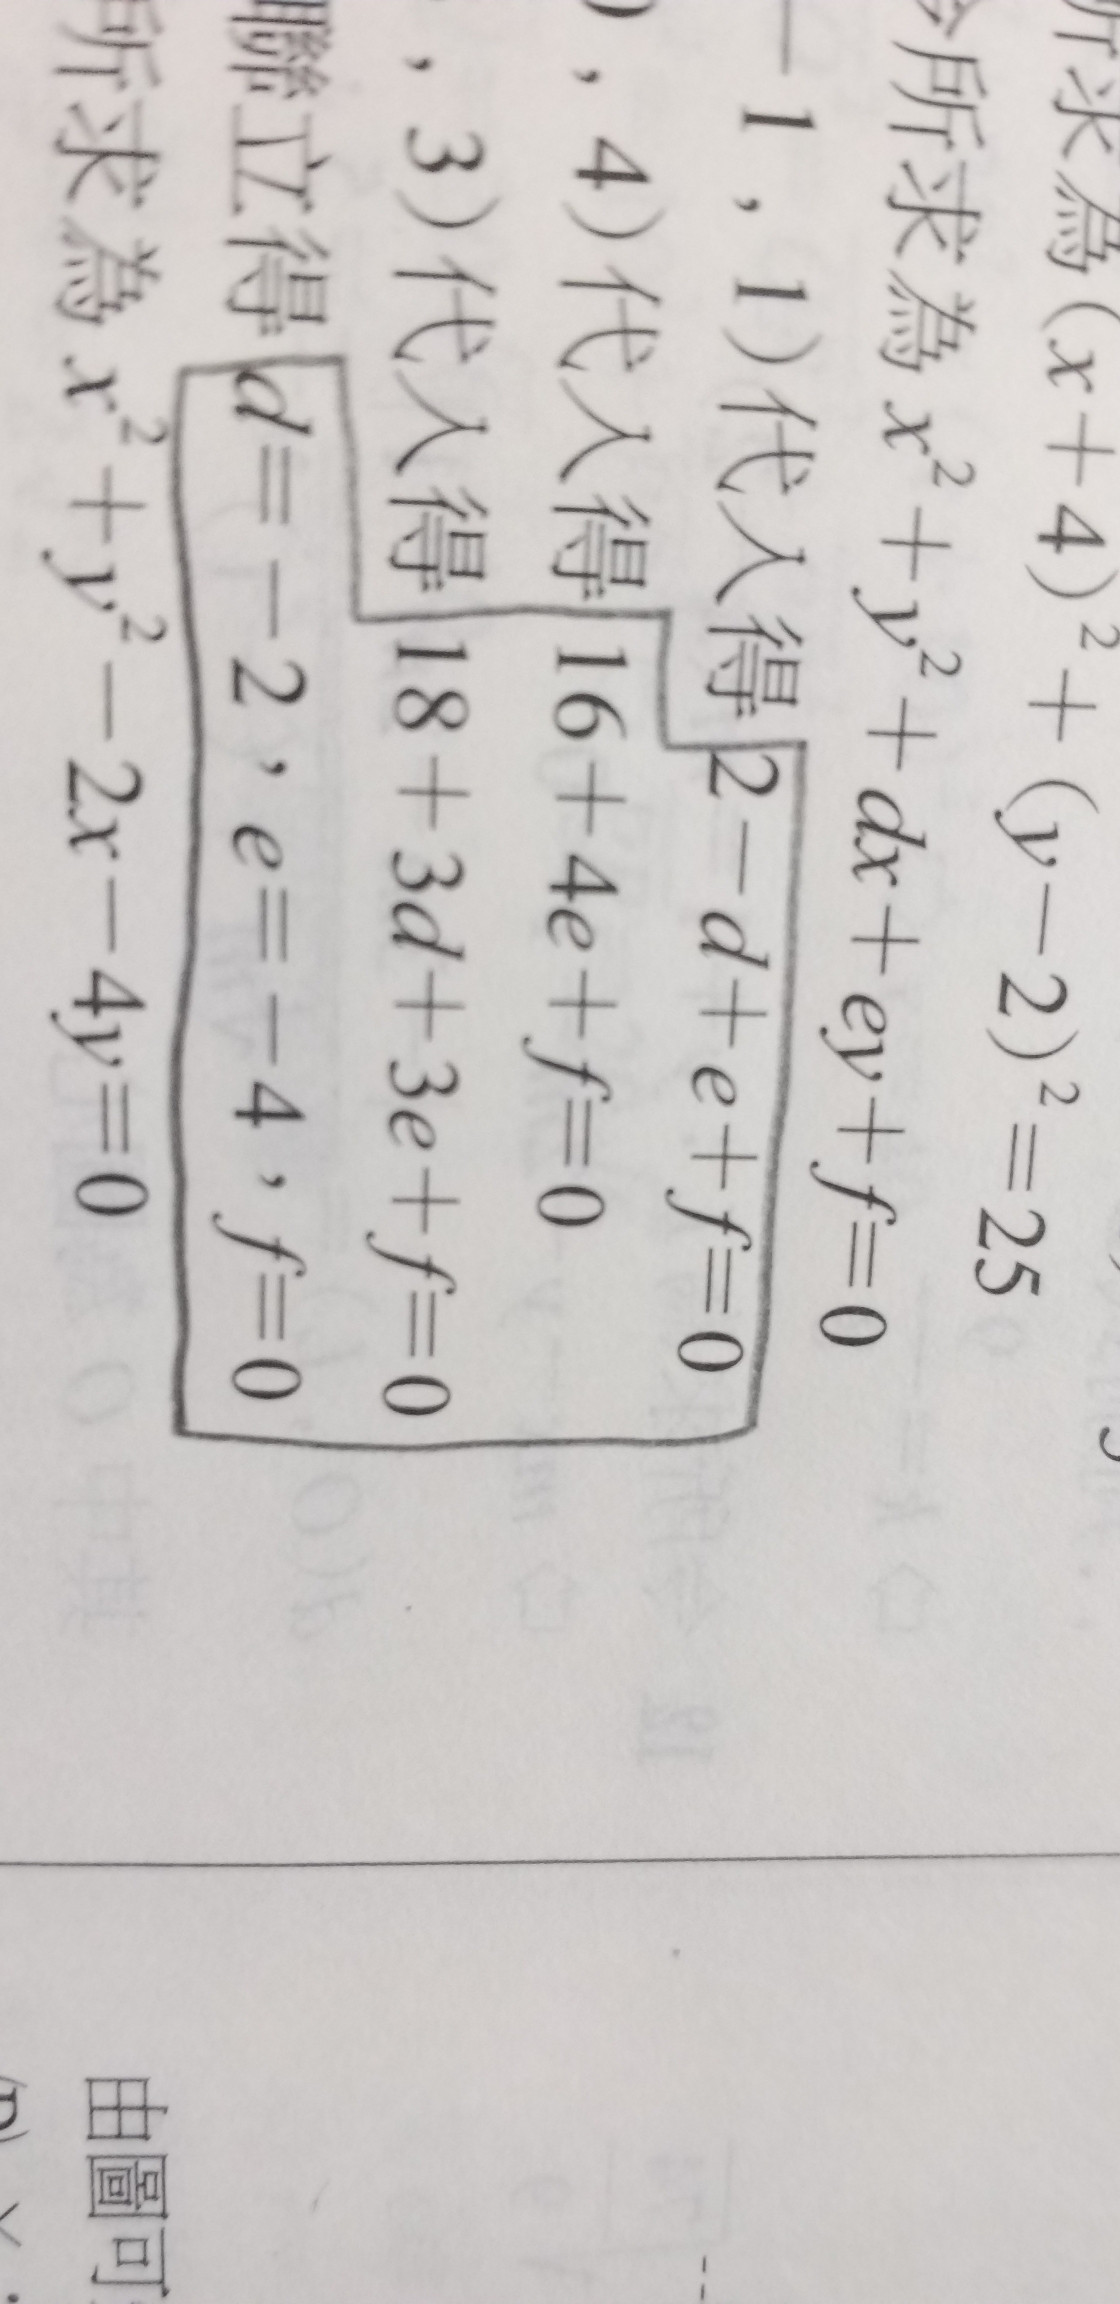 所求為 (x+4)²+(y−2)²=25
令所求為 x²+y²+dx+ey+f=0
−1，1)代入得 2−d+e+f=0
，4)代入得 16+4e+f=0
，3)代入得 18+3d+3e+f=0
聯立得 d=−2，e=−4，f=0
所求為 x²+y²−2x−4y=0
由圖可